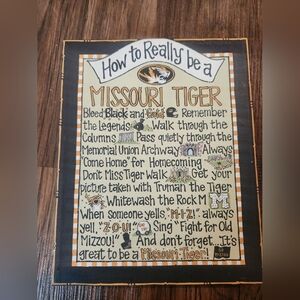 How to Really be a
MISSOURI TIGER
Bleed Black and Gold Remember
the Legends Walk through the
Columns Pass quietly through the
Memorial Union Archway Always
"Come Home" for Homecoming
Dont Miss Tiger Walk Get your
picture taken with Truman the Tiger
Whitewash the Rock M M
When someone yells, "M-I-Z!" always
yell, "Z-O-U!" Sing "Fight for Old
Mizzou!" And don't forget...It's
great to be a Missouri Tiger!